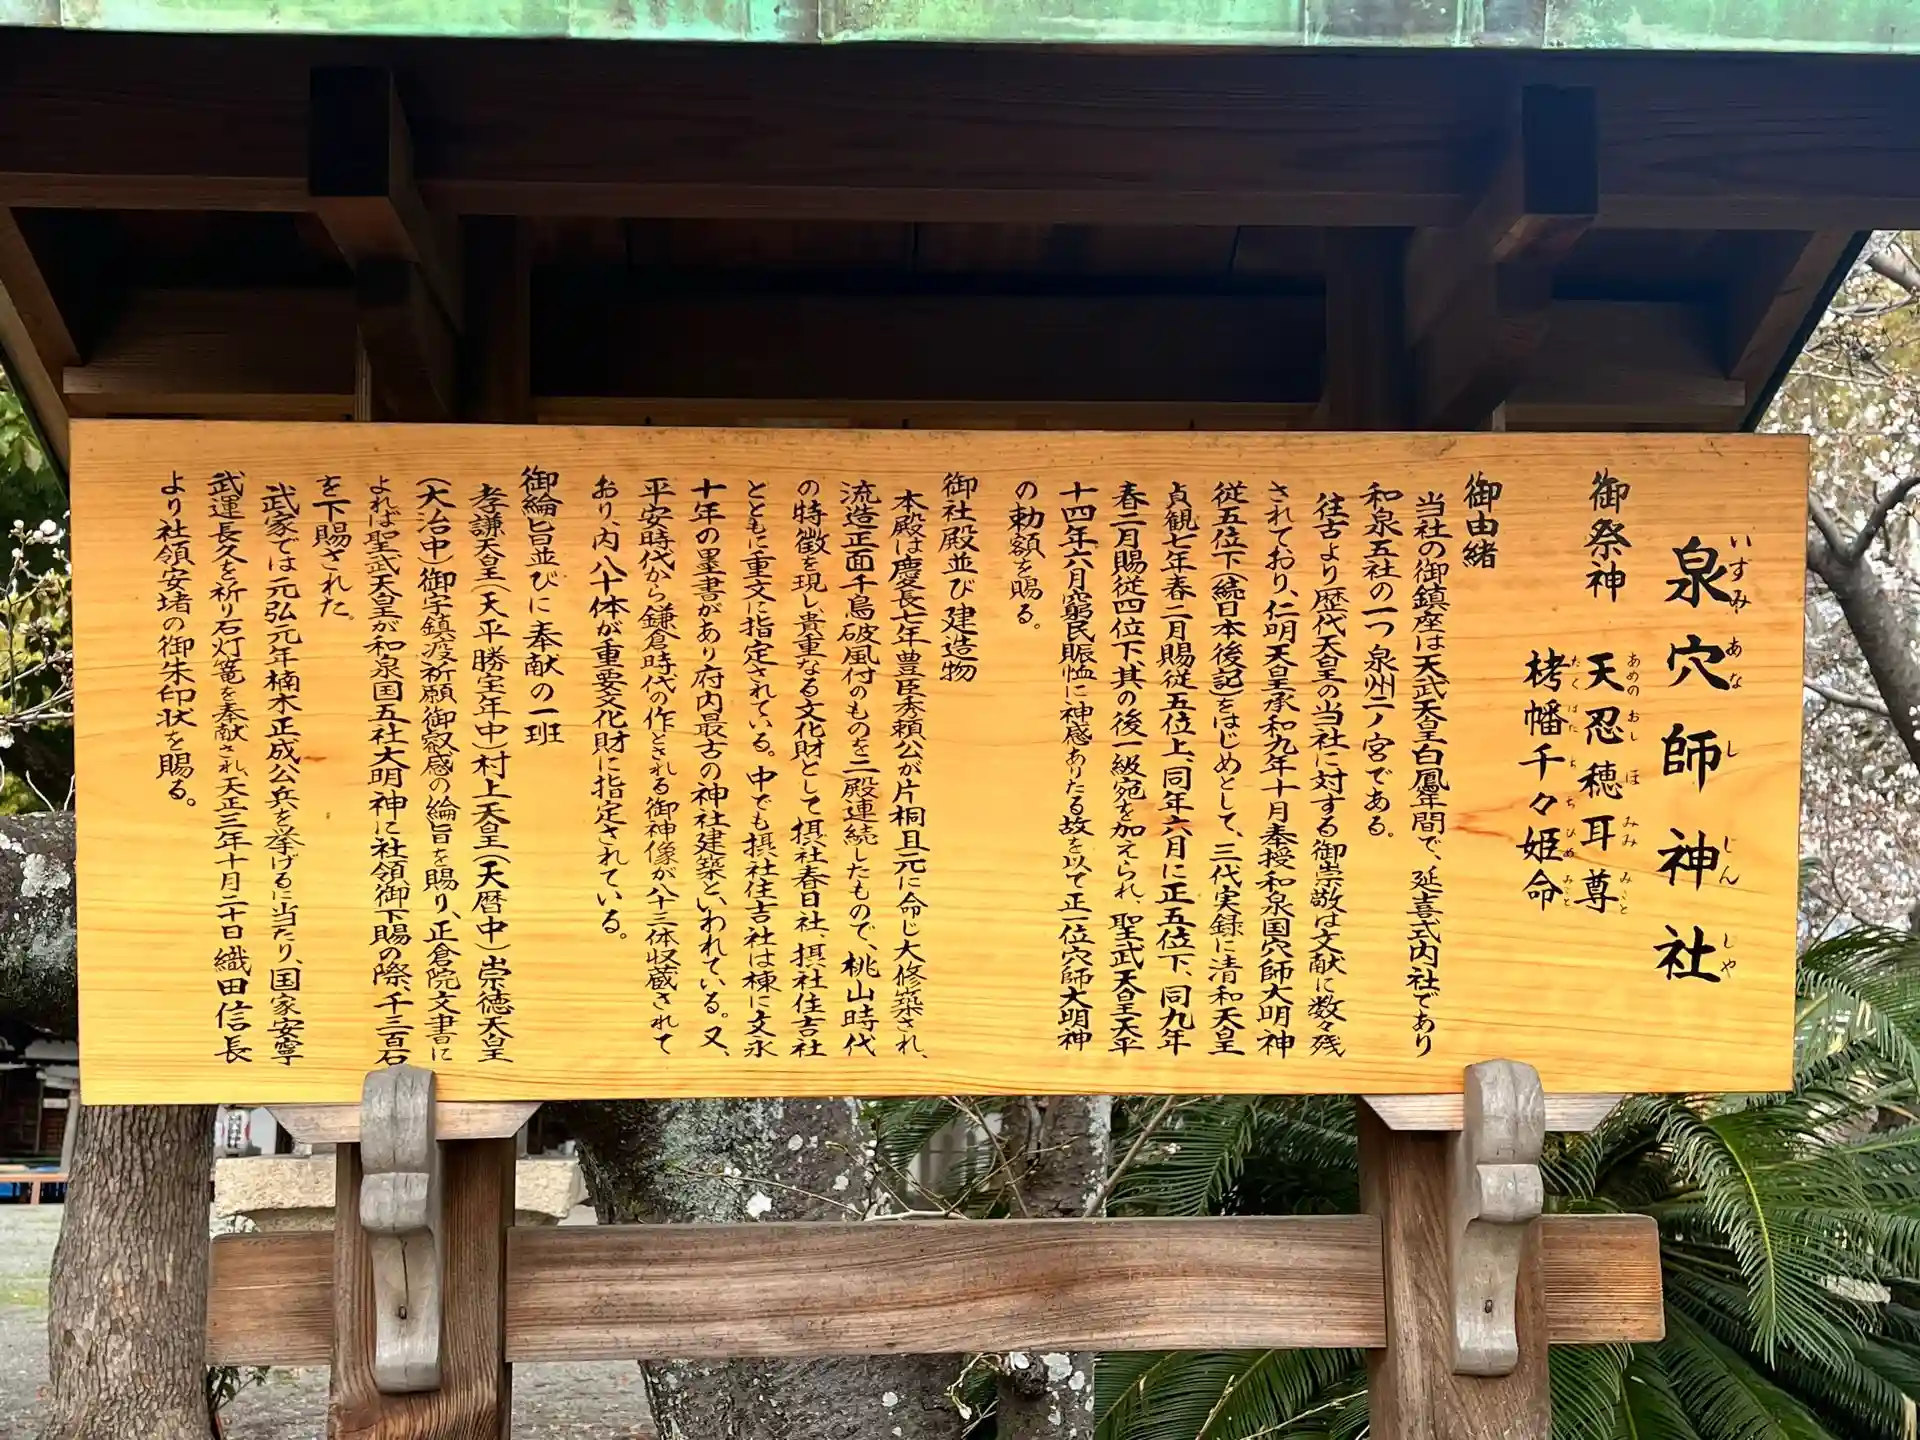 泉穴師神社
いずみあなしじんしゃ
御祭神
天忍穂耳尊
あめのおしほみみみこと
栲幡千々姫命
たくはたちぢひめみこと
御由緒
当社の御鎮座は天武天皇白鳳年間で、延喜式内社であり
和泉五社の一つ泉州二ノ宮である。
往古より歴代天皇の当社に対する御崇敬は文献に数々残
されており、仁明天皇承和九年十月奉授和泉国穴師大明神
従五位下（続日本後記）をはじめとして、三代実録に清和天皇
貞観七年春二月賜従五位上、同年六月に正五位下、同九年
春二月賜従四位下、其の後一級宛を加えられ、聖武天皇天平
十四年六月窮民賑恤に神感ありたる故を以て正一位穴師大明神
の勅額を賜る。
御社殿並び建造物
本殿は慶長七年豊臣秀頼公が片桐且元に命じ大修築され、
流造正面千鳥破風付のものを二殿連続したもので、桃山時代
の特徴を現し貴重なる文化財として摂社春日社、摂社住吉社
とともに重文に指定されている。中でも摂社住吉社は棟に文永
十年の墨書があり府内最古の神社建築といわれている。又、
平安時代から鎌倉時代の作とされる御神像が八十三体収蔵されて
おり、内八十体が重要文化財に指定されている。
御綸旨並びに奉献の一班
孝謙天皇（天平勝宝年中）村上天皇（天暦中）崇徳天皇
（大治中）御宇鎮疫祈願御叡感の綸旨を賜り、正倉院文書に
よれば聖武天皇が和泉国五社大明神に社領御下賜の際、千三百石
を下賜された。
武家では元弘元年楠木正成公兵を挙げるに当たり、国家安寧
武運長久を祈り石灯篭を奉献され、天正三年十月二十日織田信長
より社領安堵の御朱印状を賜る。